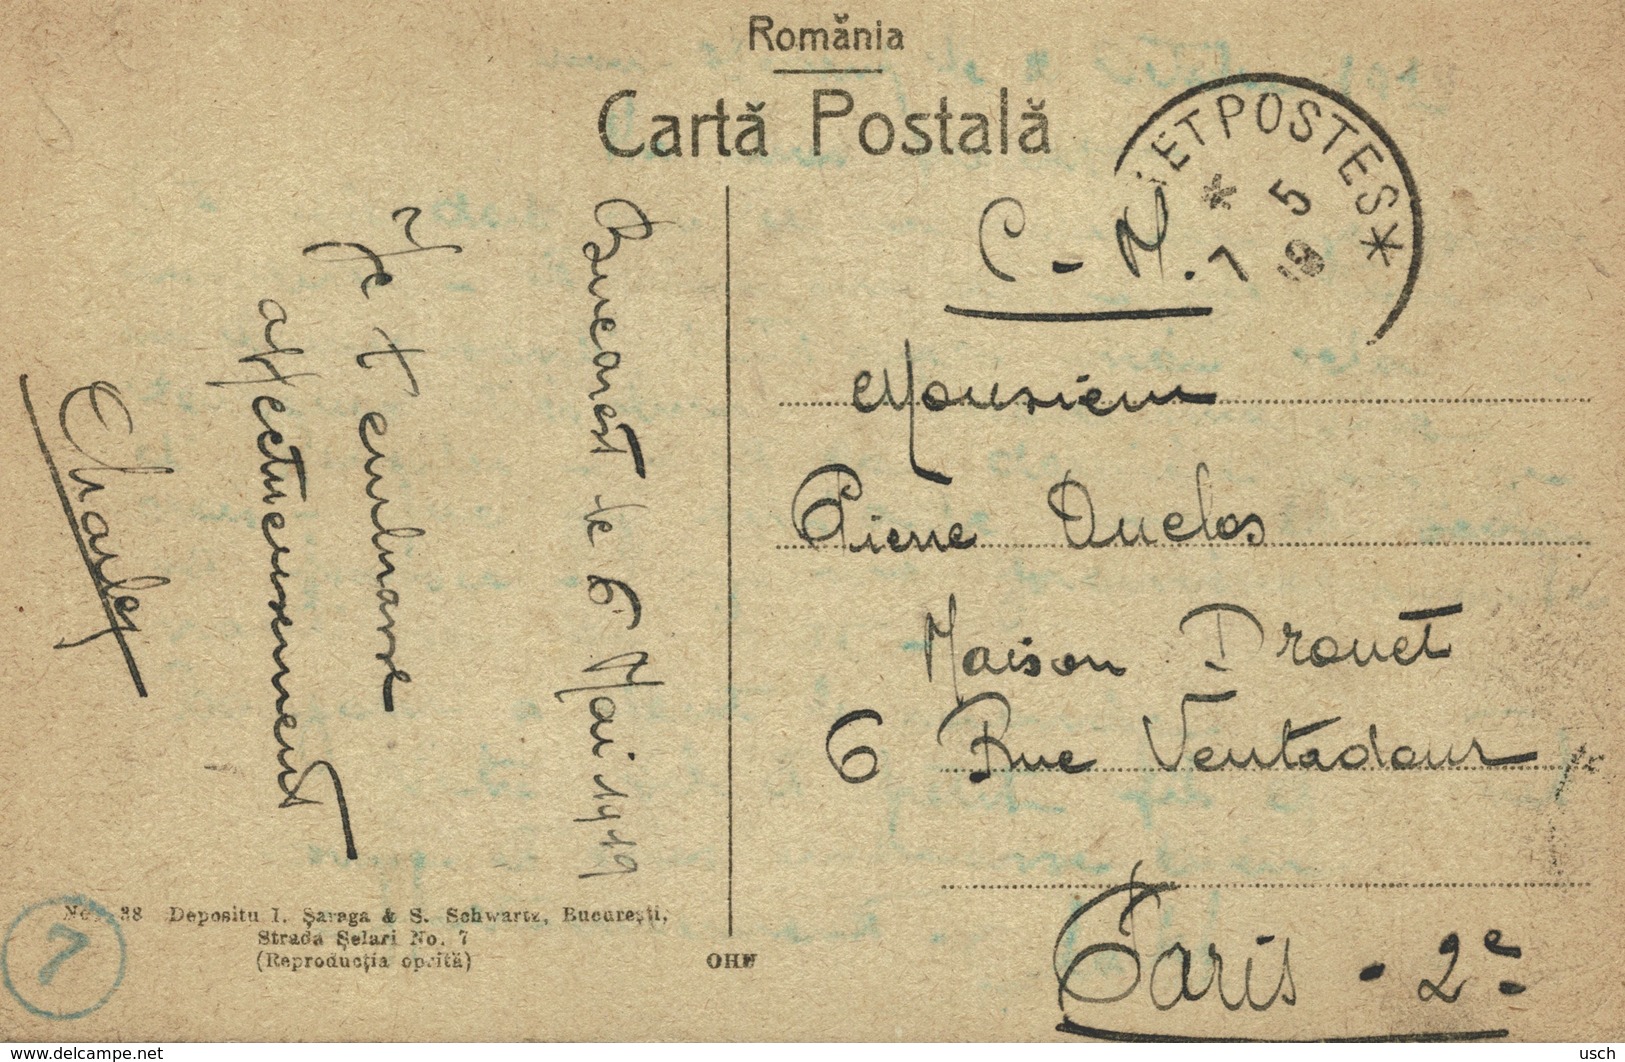 Romănia
Cartă Postală
ET POSTES *
* 5
7 19
C - M.
Monsieur
Pierre Duclos
Maison Drouet
6 Rue Ventadour
Paris - 2e
Bucarest le 6 Mai 1919
Je t'embrasse
affectueusement
Charles
No. 38 Depositu I. Șaraga & S. Schwartz, București,
Strada Șelari No. 7
(Reproducția oprită)
7
www.delcampe.net
usch